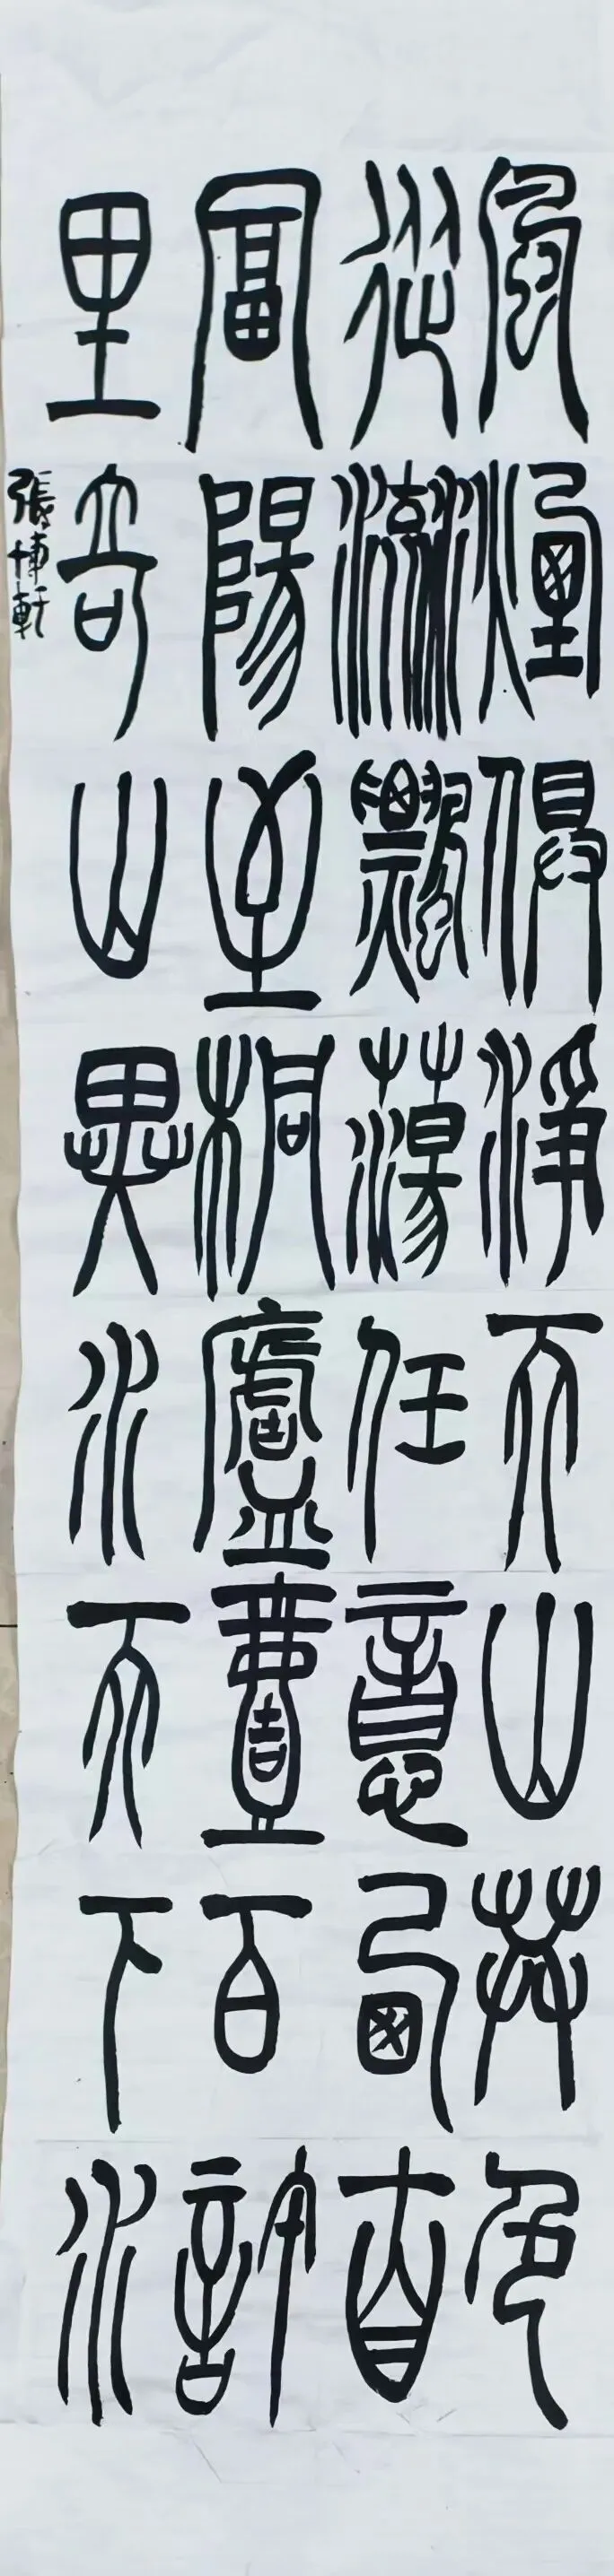 風煙俱淨天山共色
從流飄蕩任意西
富陽至桐廬壹百許
里奇山異水天下水
張博軒